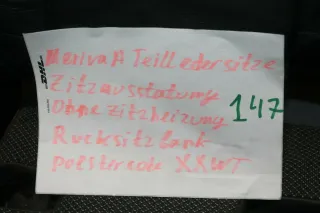 Meriva A Teilledersitze
Zitzausstatung
Ohne Zitzheizung
147
Rucksitzbank
polstercode XXWT